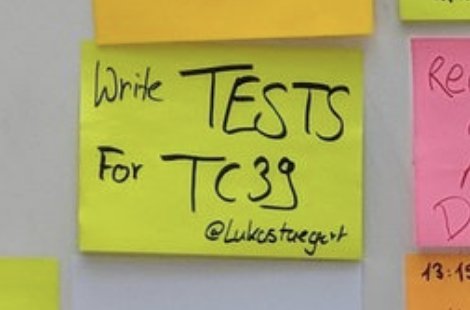 Write TESTS
For TC39
@Lukastaegert
Re
D
13:15